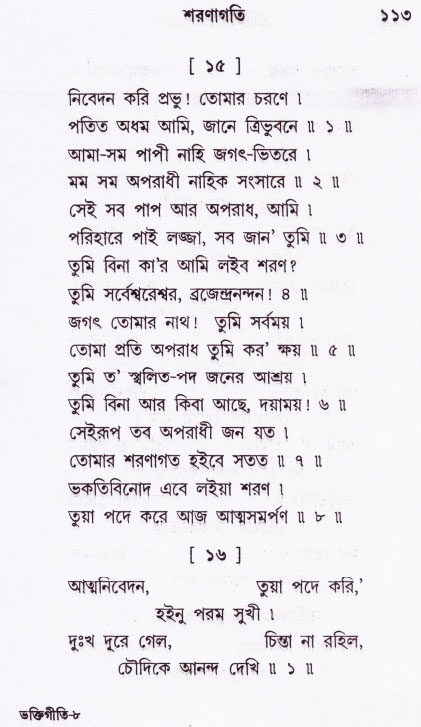 শরণাগতি ১১৩
[ ১৫ ]
নিবেদন করি প্রভু! তোমার চরণে ।
পতিত অধম আমি, জানে ত্রিভুবনে ॥ ১ ॥
আমা-সম পাপী নাহি জগৎ-ভিতরে ।
মম সম অপরাধী নাহিক সংসারে ॥ ২ ॥
সেই সব পাপ আর অপরাধ, আমি ।
পরিহারে পাই লজ্জা, সব জান' তুমি ॥ ৩ ॥
তুমি বিনা কা'র আমি লইব শরণ?
তুমি সর্বেশ্বরেশ্বর, ব্রজেন্দ্রনন্দন! ৪ ॥
জগৎ তোমার নাথ! তুমি সর্বময় ।
তোমা প্রতি অপরাধ তুমি কর' ক্ষয় ॥ ৫ ॥
তুমি ত' স্খলিত-পদ জনের আশ্রয় ।
তুমি বিনা আর কিবা আছে, দয়াময়! ৬ ॥
সেইরূপ তব অপরাধী জন যত ।
তোমার শরণাগত হইবে সতত ॥ ৭ ॥
ভকতিবিনোদ এবে লইয়া শরণ ।
তুয়া পদে করে আজ আত্মসমর্পণ ॥ ৮ ॥
[ ১৬ ]
আত্মনিবেদন, তুয়া পদে করি,'
হইনু পরম সুখী ।
দুঃখ দূরে গেল, চিন্তা না রহিল,
চৌদিকে আনন্দ দেখি ॥ ১ ॥
ভক্তিগীতি-৮